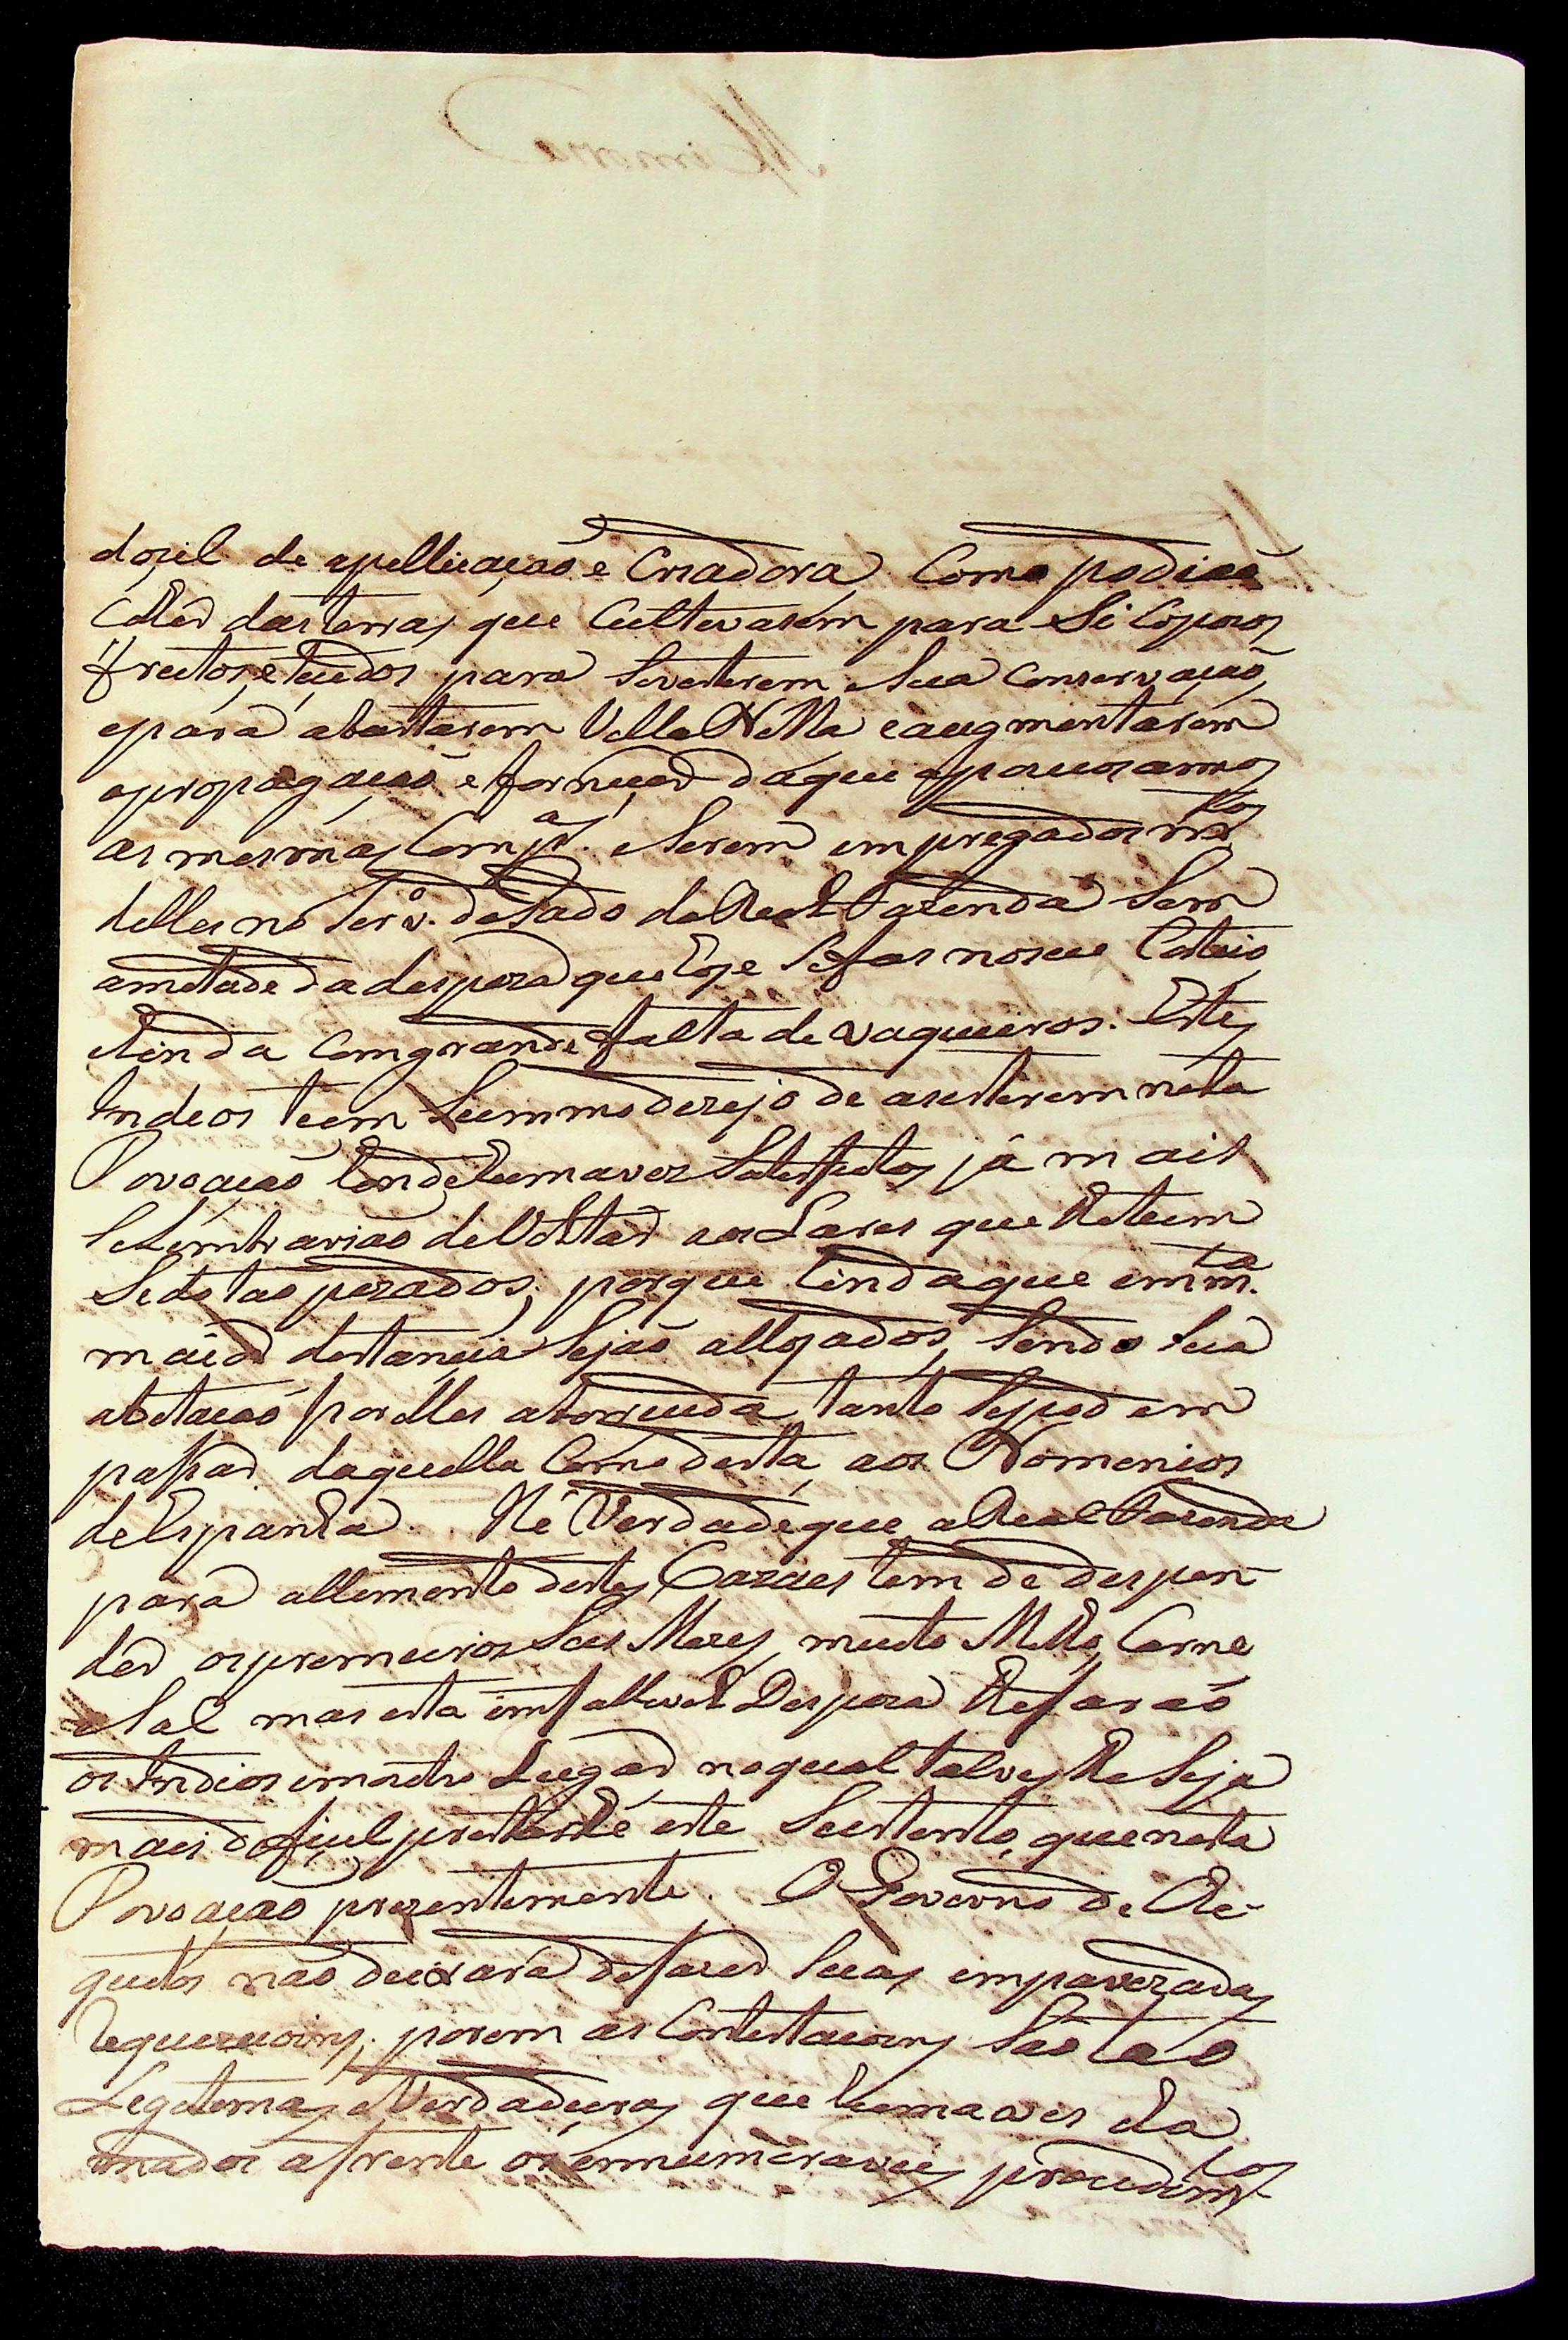 docil de apellicação e Criadora, Como podião
Colher das terras, que Cultivasem para Si Copiozos
fructos, e teudos para Sustentarem Sua Conservação,
epara abastarem Villa Bella e augmentarem
apropagação e fornecer daqui apoucos annos
as mesmas Comp.as e Serem empregados m.tos
delles no Serv.o do Gado da Real Fazenda Sem
ametade da despeza que hoje Sefas no seu Costeio
e Ainda Com grande falta de vaqueiros. Estes
Indios teem Summo dezejo de asistirem nesta
Povoação honde huma vez Satisfeitos já mais
Se Lembrarião de Voltar aos Lares que lhe teem
Sido tão pezados; porque hindaque em m.ta
maior distancia Sejão allojados, Sendo Sua
abitação por elles aborrecida, tanto Se podem
passar daquella Como desta, aos Domenios
de Espanha. Hé Verdade que a Real Fazenda
para allemento destes Cazaes tem de despen-
der os premeiros Seis Mezes, muito Milho, Carne
e Sal mas esta imfallivel Despeza lhe farão
os Indios em outro Lugar, no qual talvez lhe Seja
mais deficil prestarlhe este Sustento, que nesta
Povoação prezentemente. O Governo de Che-
quitos não deixará de fazer Suas empavezadas
requeziçoins; porem as Contestaçoins São tão
Legetemas, e Verdadeiras, que huma ves cha
mados afrente os ennumeraveis procedim.tos